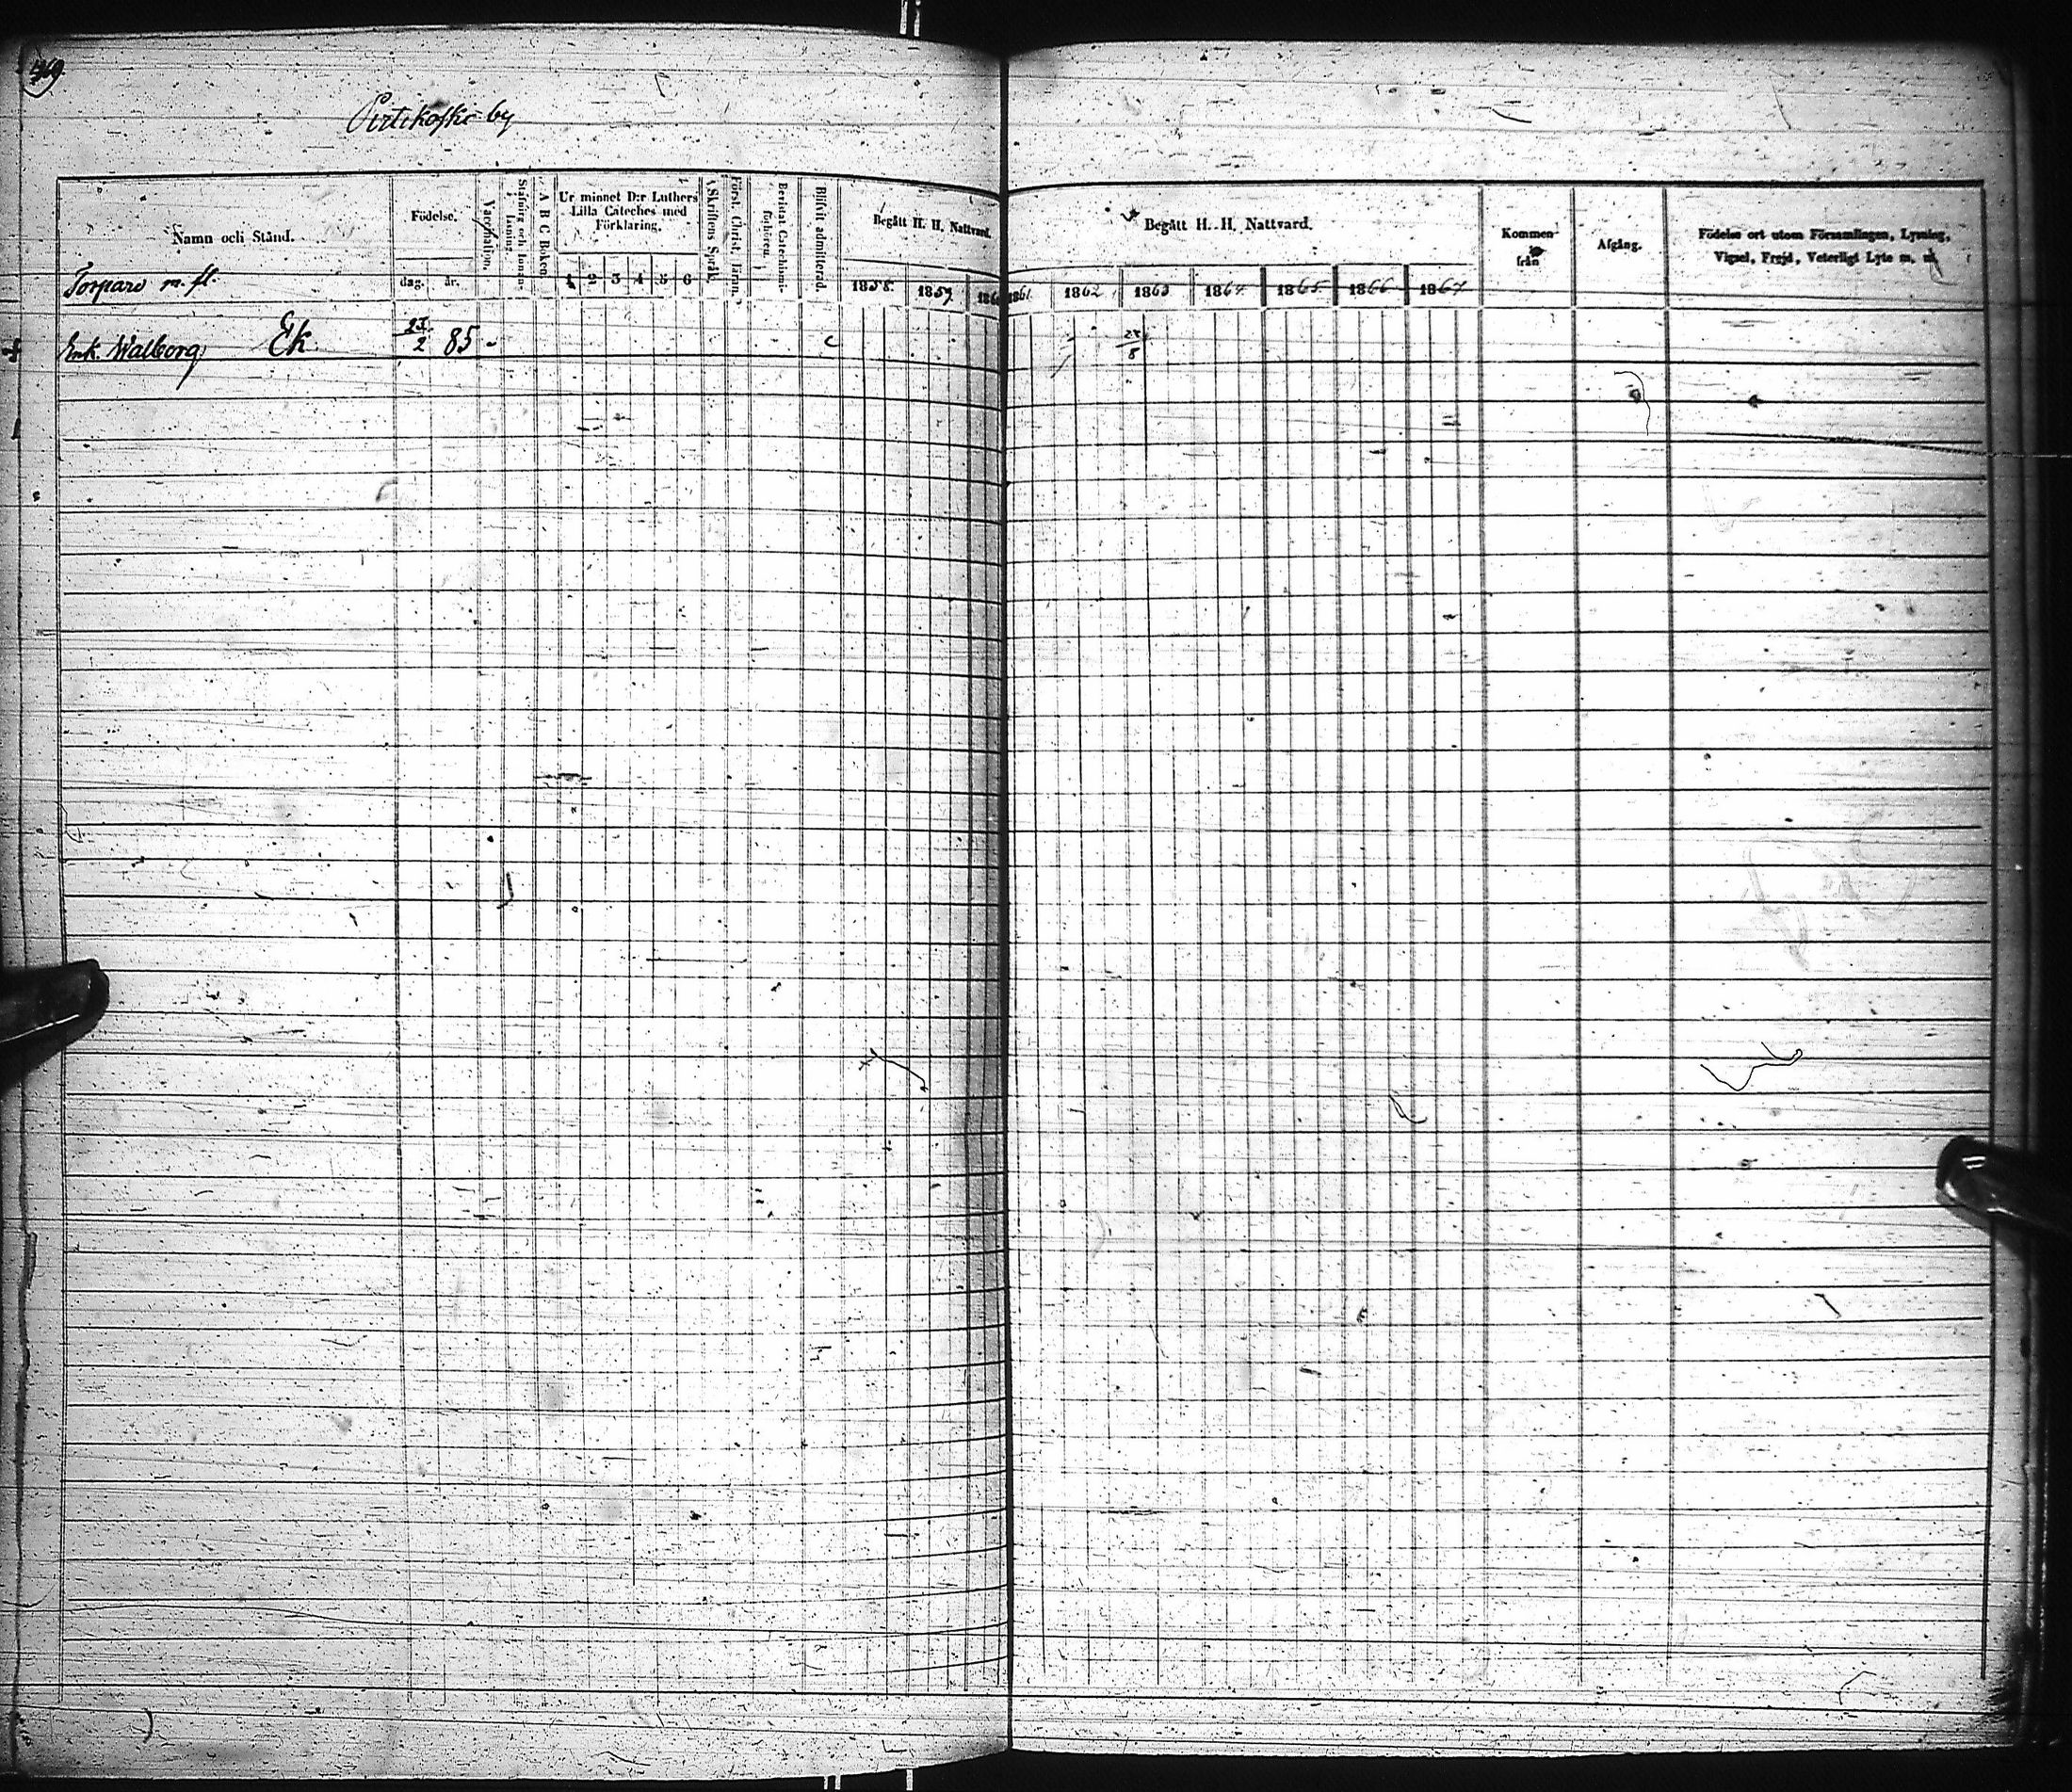 369.
Pirtikoski by
Namn och Stånd.
Födelse.
dag. år.
Vaccination.
Stafning och Innan-
Läsning.
A B C Boken.
Ur minnet D:r Luthers
Lilla Cateches med
Förklaring.
1 2 3 4 5 6
Skriftens Språk.
Först. Christ. läran.
Bevistat Catechismi-
förhören.
Blifvit admitterad.
Begått H. H. Nattvard.
1858. 1859. 1860
Begått H. H. Nattvard.
1861. 1862 1863 1864. 1865. 1866 1867.
Kommen
från
Afgång.
Födelse ort utom Församlingen, Lysning,
Vigsel, Frejd, Veterligt Lyte m. m.
Torpare m. fl.
+ Enk. Walborg Ek. 2 85 - c 8